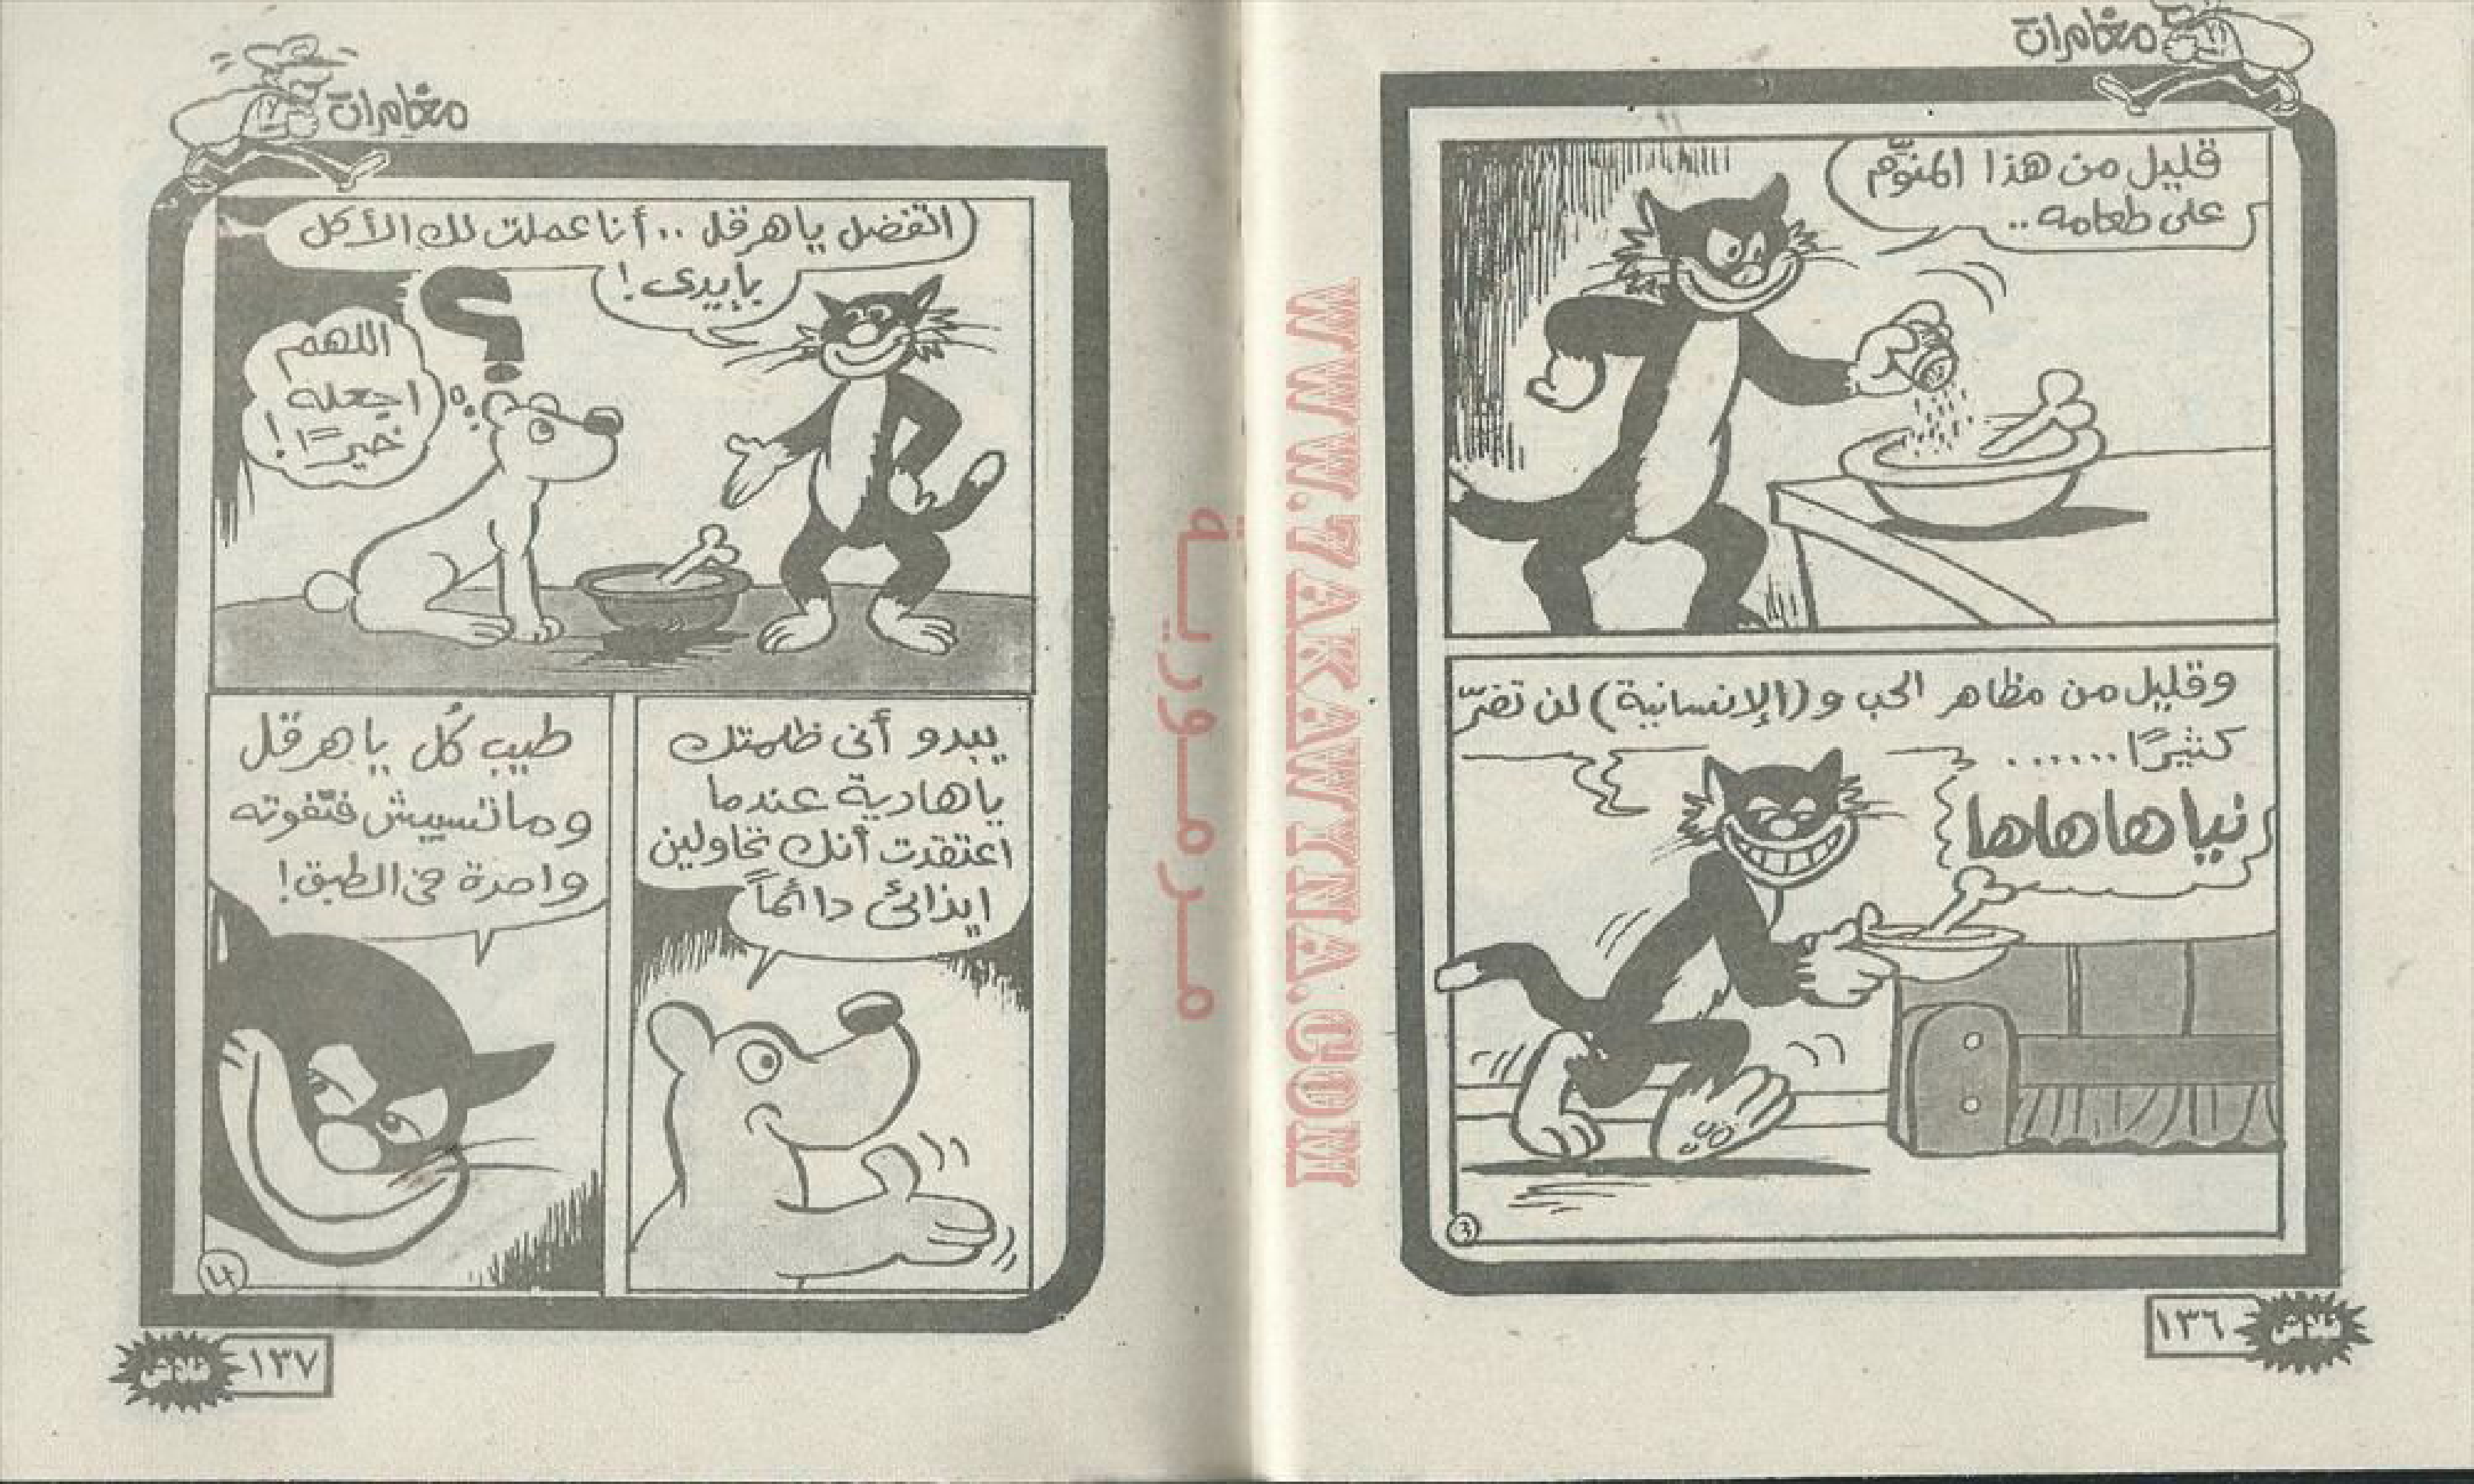 مغامرات
قليل من هذا المنوّم
على طعامه..
وقليل من مظاهر الحب و(الإنسانية) لن تضرّ
كثيرًا.......
نياهاهاها
٣
١٣٦
فلاش
WWW.7AKAWYNA.COM
مرمورية
مغامرات
اتفضل ياهرقل .. أنا عملت لك الأكل
بإيدى!
؟
اللهم
اجعله
خيرًا!
يبدو أنى ظلمتك
ياهادية عندما
اعتقدت أنك تحاولين
إيذائى دائماً
طيب كُل ياهرقل
وماتسيبش فتفوته
واحدة فى الطبق!
٤
١٣٧
فلاش